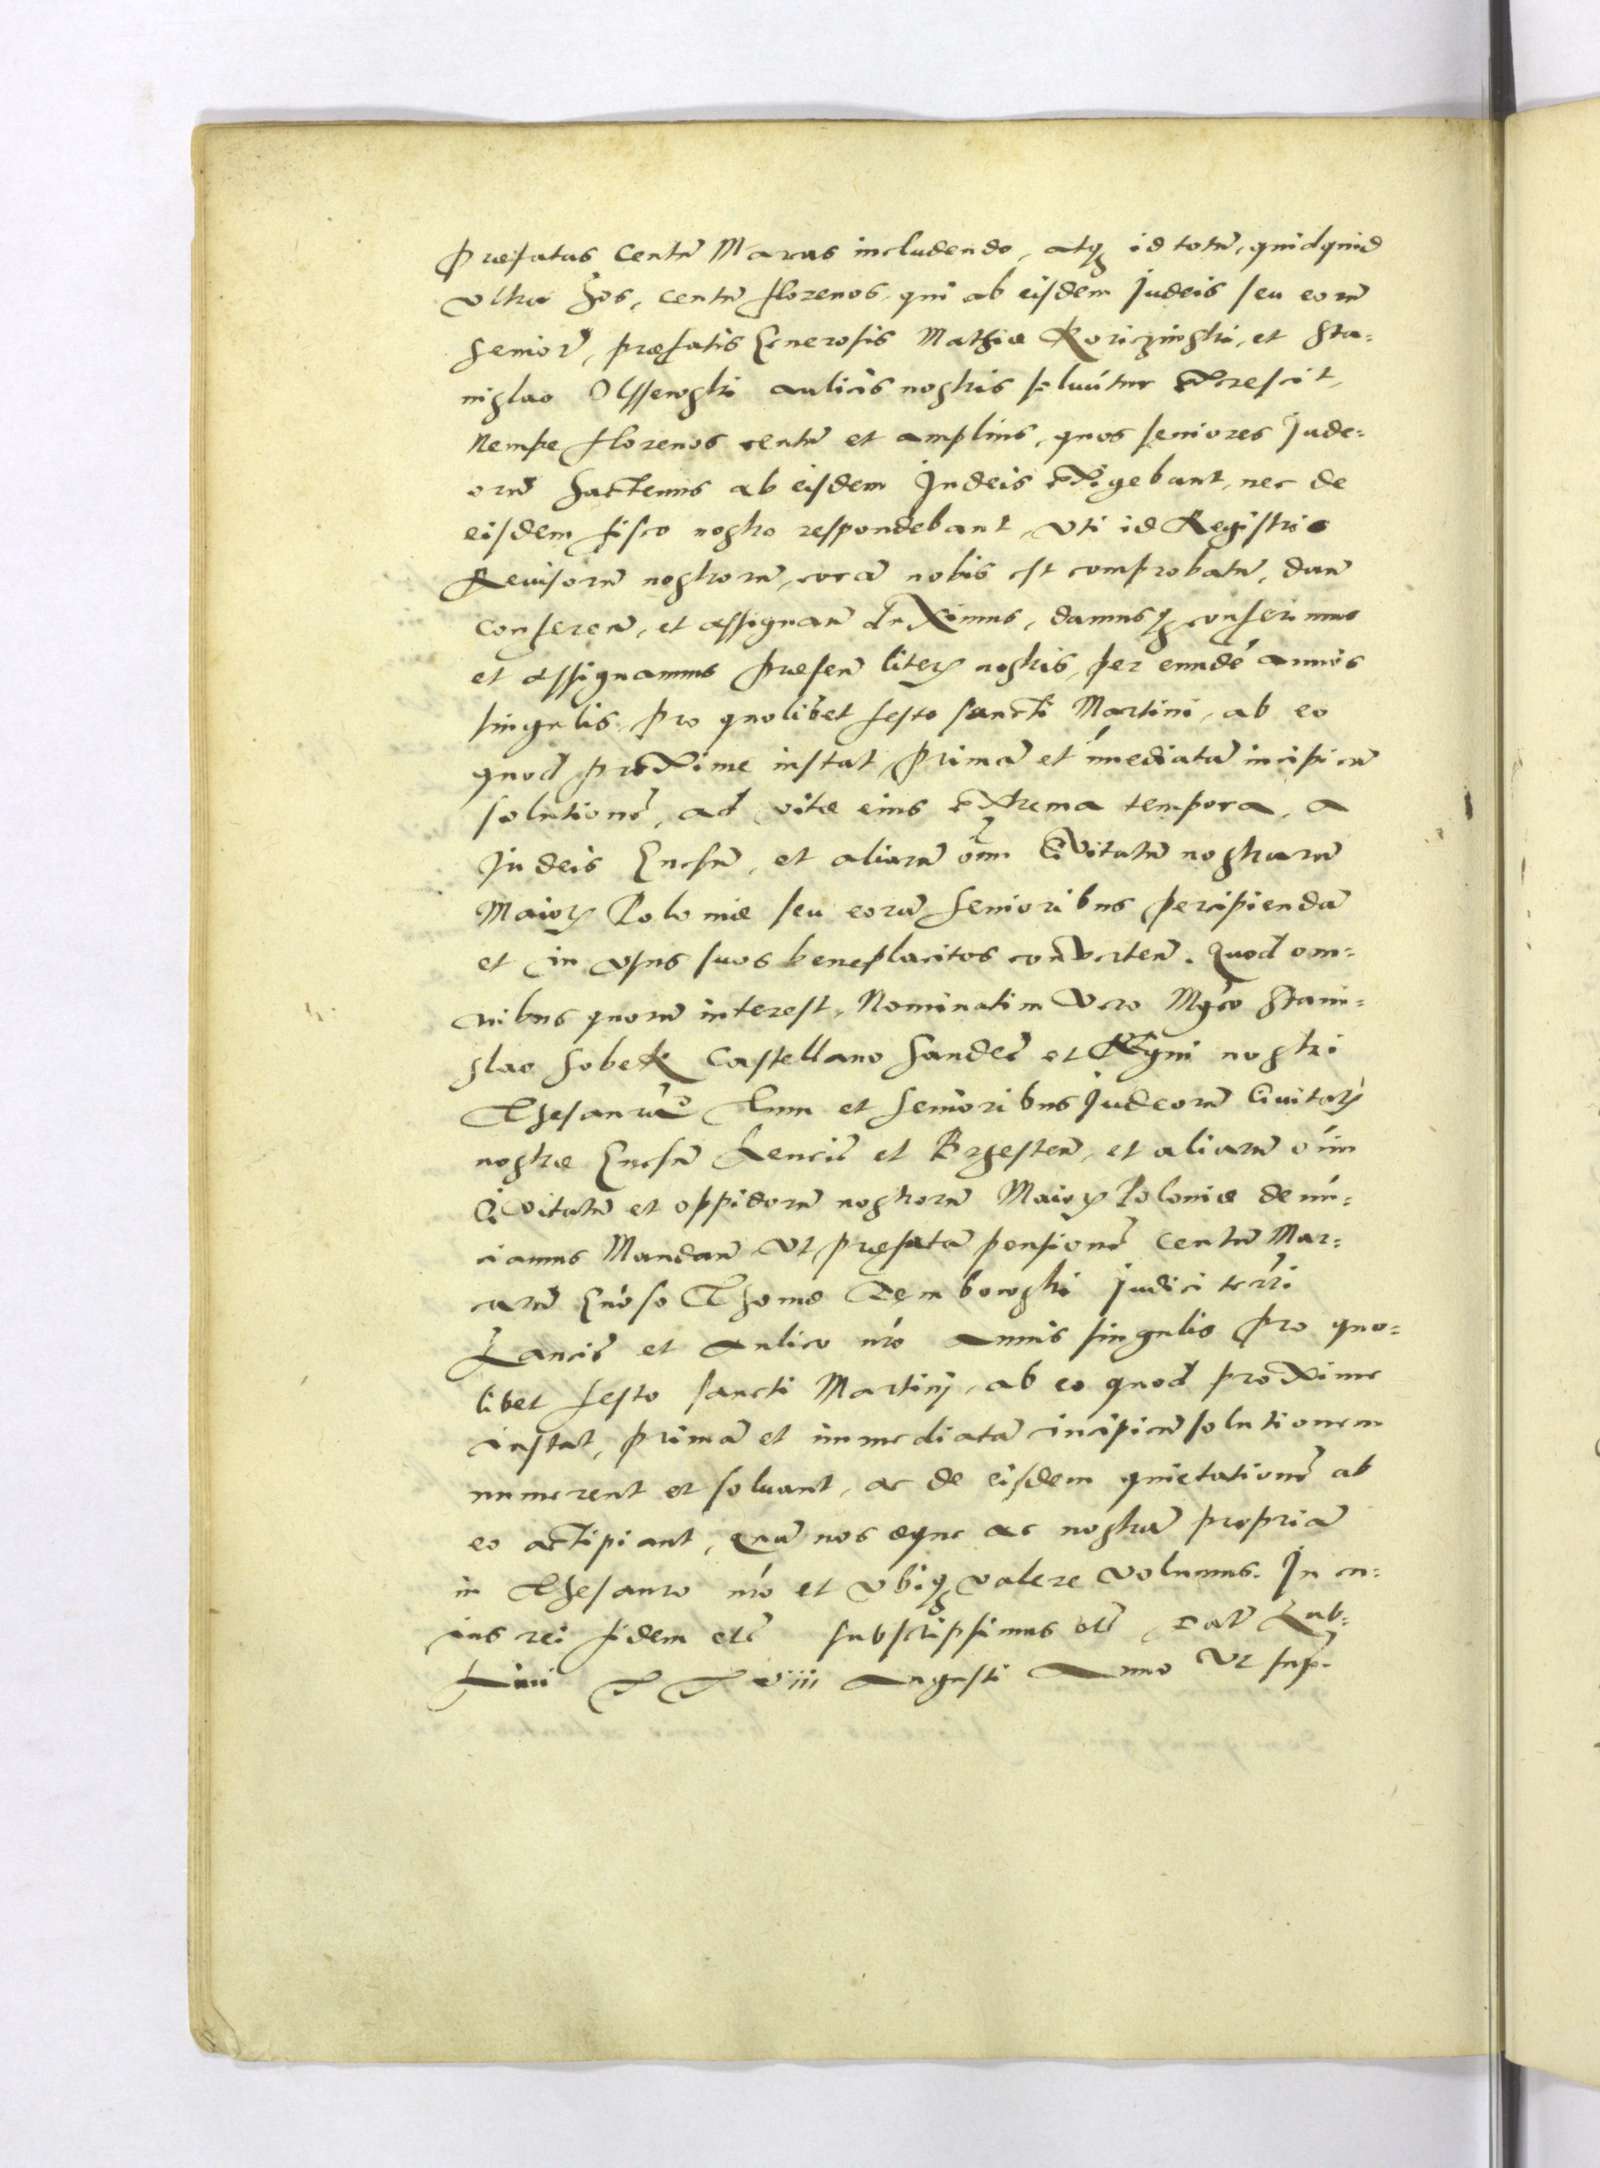 Præfatas Centū Marcas includendo, atq̨ id totū, quidquid
vltra hos, centū florenos, qui ab eisdem Judeis seu eorū
Seniorꝰ, præfatis Generosis Mathiæ Koriczinski, et Sta=
nislao Olssewski aulicis nostris soluūtur excrescit,
Nempe florenos centū et amplius, quos seniores Jude=
orū hactenus ab eisdem Judeis exigebant, nec de
eisdem fisco nostro respondebant, vti id Registris
Reuisorū nostrorū, corā nobis est comprobatū, dan̄
Conferen̄, et assignan̄ duximus, damusq̨ conferimus
et assignamus præsen̄ literꝭ nostris, per eundē annis
singulis pro quolibet festo sancti Martini, ab eo
quod proxime instat, primā et im̄ediatā incipien̄
solutionē, ad vitæ eius extrema tempora, a
Judeis Gnesn̄, et aliarū om̄ Ciuitatū nostrarū
Maiorꝭ Poloniæ seu eorū Senioribus percipiendā
et in vsus suos beneplacitos conuerten̄. Quod om=
nibus quorū interest, Nominatim vero Mgco Stani=
slao Sobek Castellano Sandec̄ et Regni nostri
Thesaurario Tum et Senioribus Judeorū Ciuitatꝭ
nostræ Gnesn̄ Lencic̄ et Brzesten̄, et aliarū om̄
Ciuitatū et oppidorū nostrorū Maiorꝭ Poloniæ denū=
ciamus Mandan̄ vt præfatā pensionē centū Mar=
carū Gnoso Thomæ Dembowski Judici terrī
Lancic̄ et Aulico nr̄o Annis singulis pro quo=
libet festo sancti Martinj, ab eo quod proxime
instat, primā et immediatā incipien̄ solutionem
numerent et soluant, ac de eisdem quietationē ab
eo accipiant, quā nos æque ac nostrā propriā
in Thesauro nr̄o et vbiq̨ valere volumus. In cu=
ius rei fidem etc̄ subscripsimus etc̄ Dat̄ Lub=
lini XXviii Augusti Anno Vt sup.